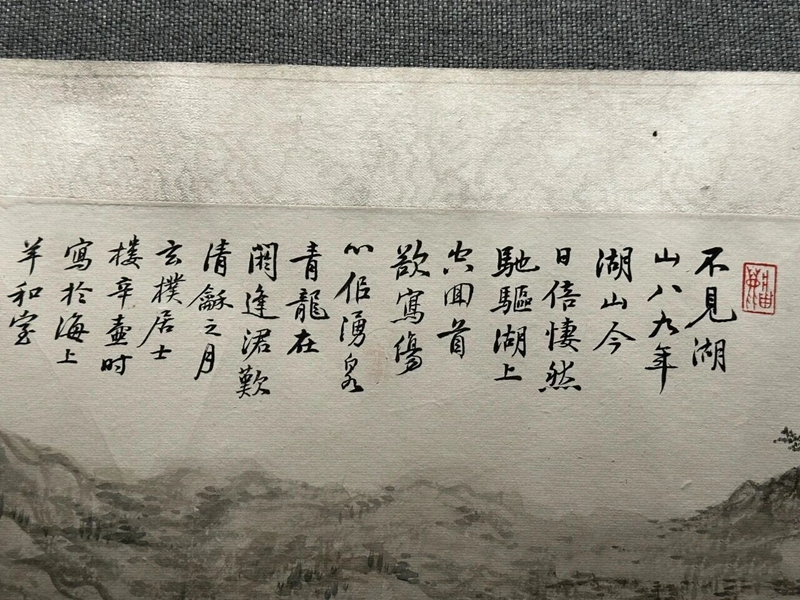 不見湖
山八九年
湖山今
日倍悽然
馳驅湖上
空回首
欲寫傷
心湧泉
青龍在
閼逢涒歎
清龢之月
玄樸居士
樓辛壺时
寫於海上
羊和室